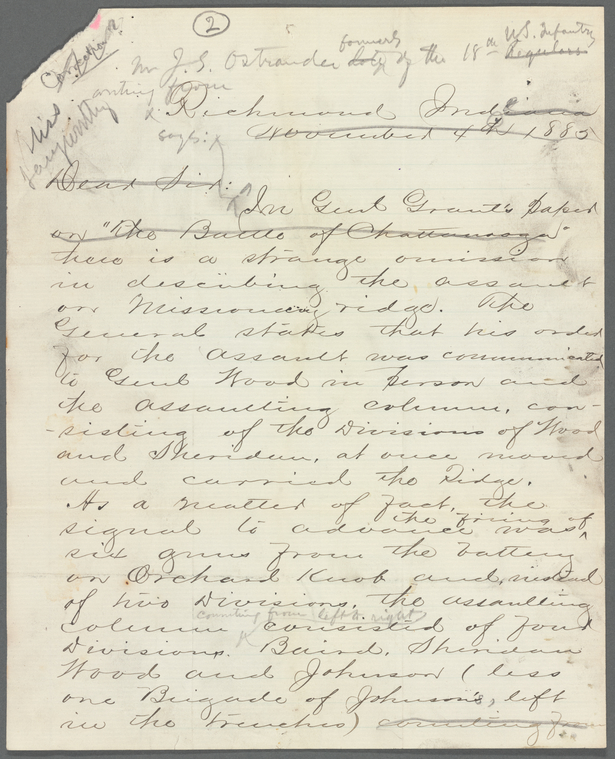 2
Correction?
Miss
Mr J. G. Ostrander formerly of the 18th U.S. Infantry Regulars
writing from
Richmond Indiana
November 4th 1885
says:
Dear Sir:
In Genl Grant's paper
on "The Battle of Chattanooga"
there is a strange omission
in describing the assault
on Missionary ridge. The
General states that his order
for the assault was communicated
to Genl Wood in person and
the assaulting column, con-
-sisting of the Divisions of Wood
and Sheridan, at once moved
and carried the Ridge.
As a matter of fact, the
signal to advance was the firing of
six guns from the battery
on Orchard Knob and, instead
of two Divisions, the assaulting
counting from left to right
column consisted of four
Divisions. Baird, Sheridan
Wood and Johnson (less
one Brigade of Johnson's, left
in the trenches) counting from